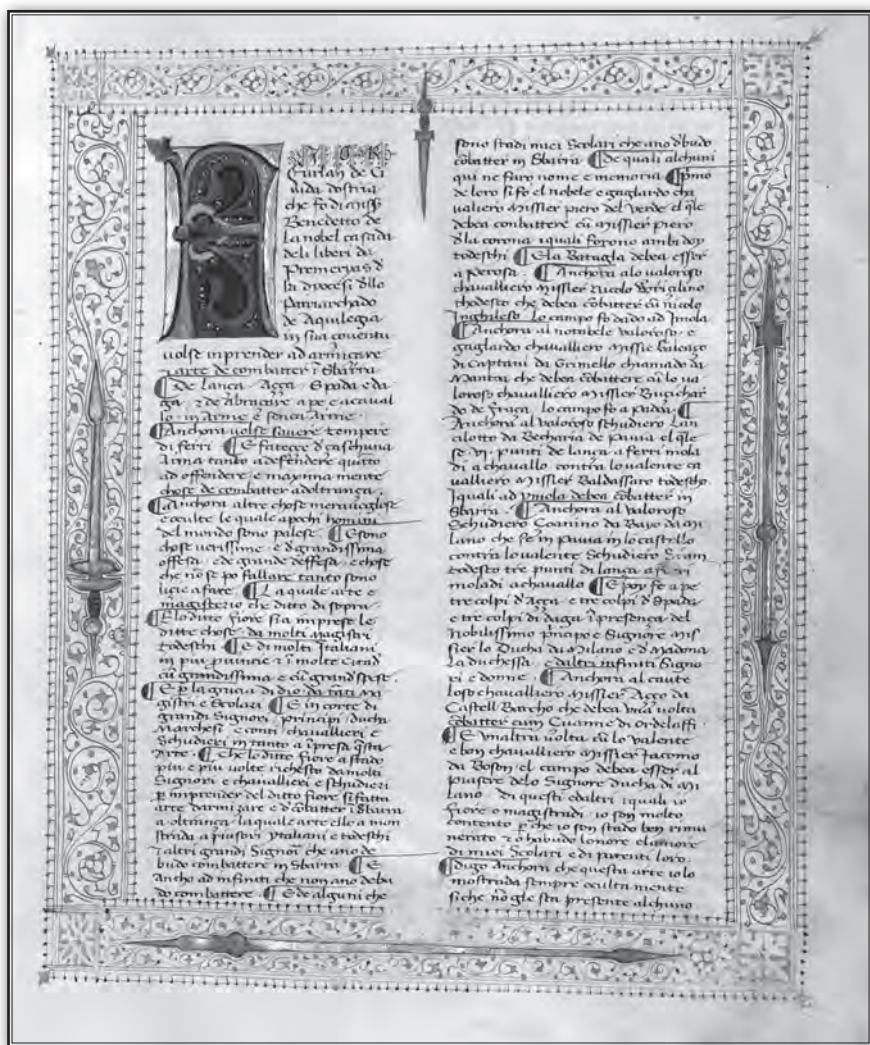 FIOR
Furlan de Ci
uida dostria
che fo di miss
Benedetto de
la nobel casada
deli liberi da
Premeryas d
la diocesi dllo
Patriarchado
de Aquilegia
in sua couentu
uolse inprender ad armiçare
i arte de combatter i Sbarra
De lança Açça Spada e da
ga & de abraçare a pe e acaual
lo in arme e sença arme
Anchora uolse sauere tempere
di ferri E fateçe d çaschuna
arma tanto a defendere quanto
ad offendere e maximamente
chose de combatter ad oltrança
Anchora altre chose meraueglose
e oculte le quale a pochi homini
del mondo sono palese E sono
chose uerissime e d grandissima
offesa e de grande deffesa e chose
che no se po fallare tanto sono
liçie a fare La quale arte e
magisterio che ditto di sopra
E lo ditto fiore si a imprese le
ditte chose da molti magistri
todeschi E di molti Italiani
in piu prouincie & i molte Citad
cu grandissima e cu grand spese
E p la gracia di dio da tati Ma
gistri e Scolari E in corte di
grandi Signori principi duchi
Marchesi e conti chauallieri e
Schudieri in tanto a ipresa qsta
Arte E che lo ditto fiore a stado
piu e piu uolte richesto da molti
Signori e chauallieri e schudieri
p imprender del ditto fiore si fatta
arte darmiçare e d cobatter i Sbarra
a oltrança la quale arte ello a mon
strada a piusori ytaliani e todeschi
& altri grandi Signori che ano de
budo combattere in Sbarra E
Ancho ad infiniti che non ano debu
do combattere E de alguni che
sono stadi miei Scolari che ano dbudo
cobatter in Sbarra De quali alchuni
qui ne faro nome e memoria Pmo
de loro si fo el nobele e gagliardo cha
ualiero Missier piero del verde el qle
debea conbattere cu missier piero
dla corona i quali forono ambi doy
todeschi E la Bataglia debea esser
a Perosa Anchora a lo ualoroso
chavalliero Missier Nicolo Voriçilino
thodesco che debea cobatter cu nicolo
Inghileso Lo campo fo dado ad Imola
Anchora al notabele ualoroso e
gagliardo chavalliero Missier Galeaço
di Captani da Grimello chiamado da
Mantoa che debea cobattere cu lo ua
loroso chavalliero Missier Buçichar
do de Fraça lo campo fo a Padoa
Anchora al ualoroso schudiero Lan
cilotto da Becharia de pauia el qle
fe VI punti de lança a ferri mola
di a chauallo contra lo ualente ca
ualliero Missier Baldassaro todescho
I quali ad ymola debea cobatter in
Sbarra Anchora al ualoroso
Schudiero Çoanino da Bayo da Mi
lano che fe in Pauia in lo castello
contra lo ualente Schudiero Sram
todesco tre punti di lança a ferri
moladi a chauallo E poy fe a pe
tre colpi d Açça e tre colpi d Spada
e tre colpi di daga i presença del
Nobilissimo principo e Signore Mis
sier lo Ducha di Milano e d Madona
la duchessa e d altri infiniti Signo
ri e donne Anchora al caute
loso chavalliero Missier Açço da
Castell Barcho che debea una uolta
cobatter cum Çuanne di Ordelaffi
E unaltra uolta cu lo ualente
e bon chavalliero missier Jacomo
da Boson el campo debea esser al
piasere de lo Signore Ducha di Mi
lano di questi e d altri i quali io
fiore o magistradi io son molto
contento p che io son stado ben rimu
nerato & o habudo lonore e lamore
di miei Scolari e di parenti loro
Digo Anchora che questa arte io lo
mostrada sempre oculta mente
siche no gle sta presente alchuno